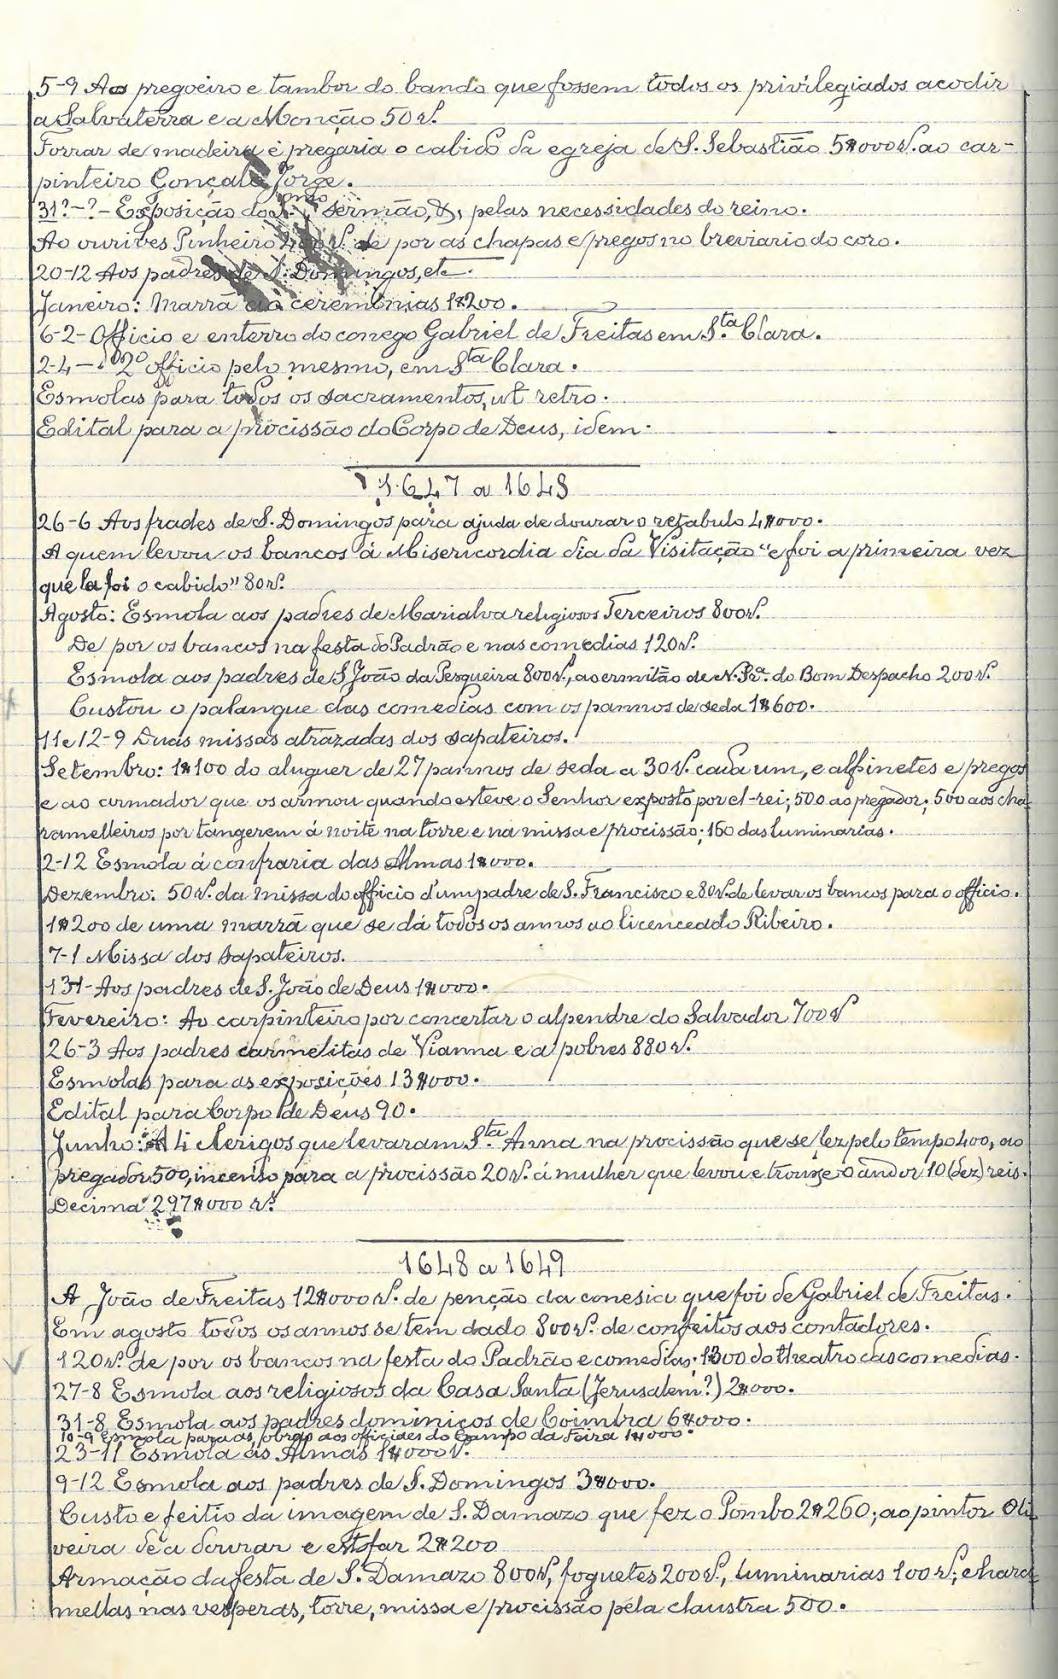 5-9 Aos pregoeiro e tambor do bando que fossem todos os privilegiados acodir
a Salvaterra e a Monção 50 rs.
Forrar de madeira e pregaria o cabido da egreja de S. Sebastião 5$000 rs. ao car-
pinteiro Gonçalo Jorge.
31?-?- Exposição do S.mo sermão, &, pelas necessidades do reino.
Ao ourives Pinheiro rs. de por as chapas e pregos no breviario do coro.
20-12 Aos padres de S. Domingos, etc.
Janeiro: Marrã ao ceremonias 1$200.
6-2- Officio e enterro do conego Gabriel de Freitas em S.ta Clara.
2-4- 2º officio pelo mesmo, em Sta Clara.
Esmolas para todos os sacramentos, ut retro.
Edital para a procissão do Corpo de Deus, idem.
1647 a 1648
26-6 Aos frades de S. Domingos para ajuda de dourar o retabulo 4$000.
A quem levou os bancos á Misericordia dia da Visitação "e foi a primeira vez
que la foi o cabido" 80 rs.
Agosto: Esmola aos padres de Marialva religiosos Terceiros 800 rs.
De por os bancos na festa do Padrão e nas comedias 120 rs.
Esmola aos padres de S. João da Pesqueira 800 rs., ao ermitão de N. Sra. do Bom Despacho 200 rs.
Custou o palanque das comedias com os pannos de seda 1$600.
11 e 12-9 Duas missas atrazadas dos sapateiros.
Setembro: 1$100 do aluguer de 27 pannos de seda a 30 rs. cada um, e alfinetes e pregos
e ao armador que os armou quando esteve o Senhor exposto por el-rei; 500 ao pregador; 500 aos cha-
ramelleiros por tangerem á noite na torre e na missa e procissão; 160 das luminarias.
2-12 Esmola á confraria das Almas 1$000.
Dezembro: 50 rs. da missa do officio d'um padre de S. Francisco e 80 rs. de levar os bancos para o officio.
1$200 de uma marrã que se dá todos os annos ao licenceado Ribeiro.
7-1 Missa dos sapateiros.
13-1- Aos padres de S. João de Deus 1$000.
Fevereiro: Ao carpinteiro por concertar o alpendre do Salvador 700 rs
26-3 Aos padres carmelitas de Vianna e a pobres 880 rs.
Esmolas para as exposições 13$000.
Edital para Corpo de Deus 90.
Junho: A 4 clerigos que levaram S.ta Anna na procissão que se fez pelo tempo 400, ao
pregador 500, incenso para a procissão 20 rs. á mulher que levou e trouxe o andor 10 (dez) reis.
Decima 297$000 rs.
1648 a 1649
A João de Freitas 12$000 rs. de penção da conesia que foi de Gabriel de Freitas.
Em agosto todos os annos se tem dado 800 rs. de confeitos aos contadores.
120 rs. de por os bancos na festa do Padrão e comedias; 1$300 do theatro das comedias.
27-8 Esmola aos religiosos da Casa Santa (Jerusalem?) 2$000.
31-8 Esmola aos padres dominicos de Coimbra 6$000.
10-9 Esmola para as obras aos officiaes do Campo da Feira 1$000.
23-11 Esmola ás Almas 1$000 rs.
9-12 Esmola aos padres de S. Domingos 3$000.
Custo e feitio da imagem de S. Damazo que fez o Pombo 2$260; ao pintor Oli-
veira de a dourar e estofar 2$200
Armação da festa de S. Damazo 800 rs, foguetes 200 rs., luminarias 100 rs; chara-
mellas nas vesperas, torre, missa e procissão pela claustra 500.